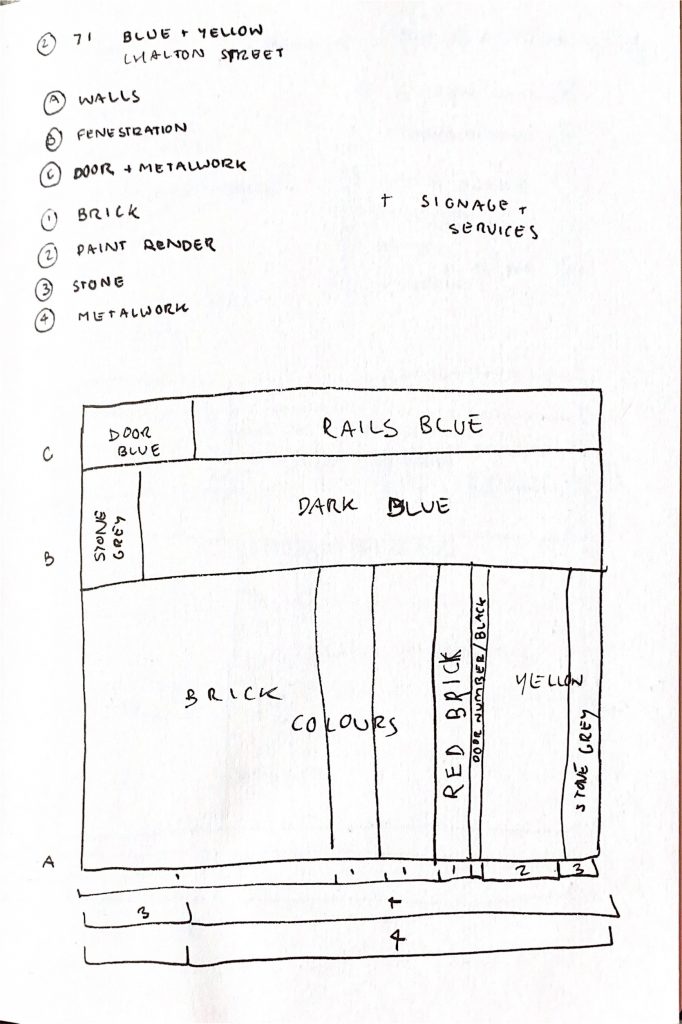 ② 71 BLUE + YELLOW
CHALTON STREET
Ⓐ WALLS
Ⓑ FENESTRATION
Ⓒ DOOR + METALWORK
① BRICK
② PAINT RENDER
③ STONE
④ METALWORK
+ SIGNAGE +
SERVICES
C
DOOR
BLUE
RAILS BLUE
B
STONE
GREY
DARK BLUE
A
BRICK
COLOURS
RED BRICK
DOOR NUMBER/BLACK
YELLOW
STONE GREY
1 1 1 1 2 3
3 4
4